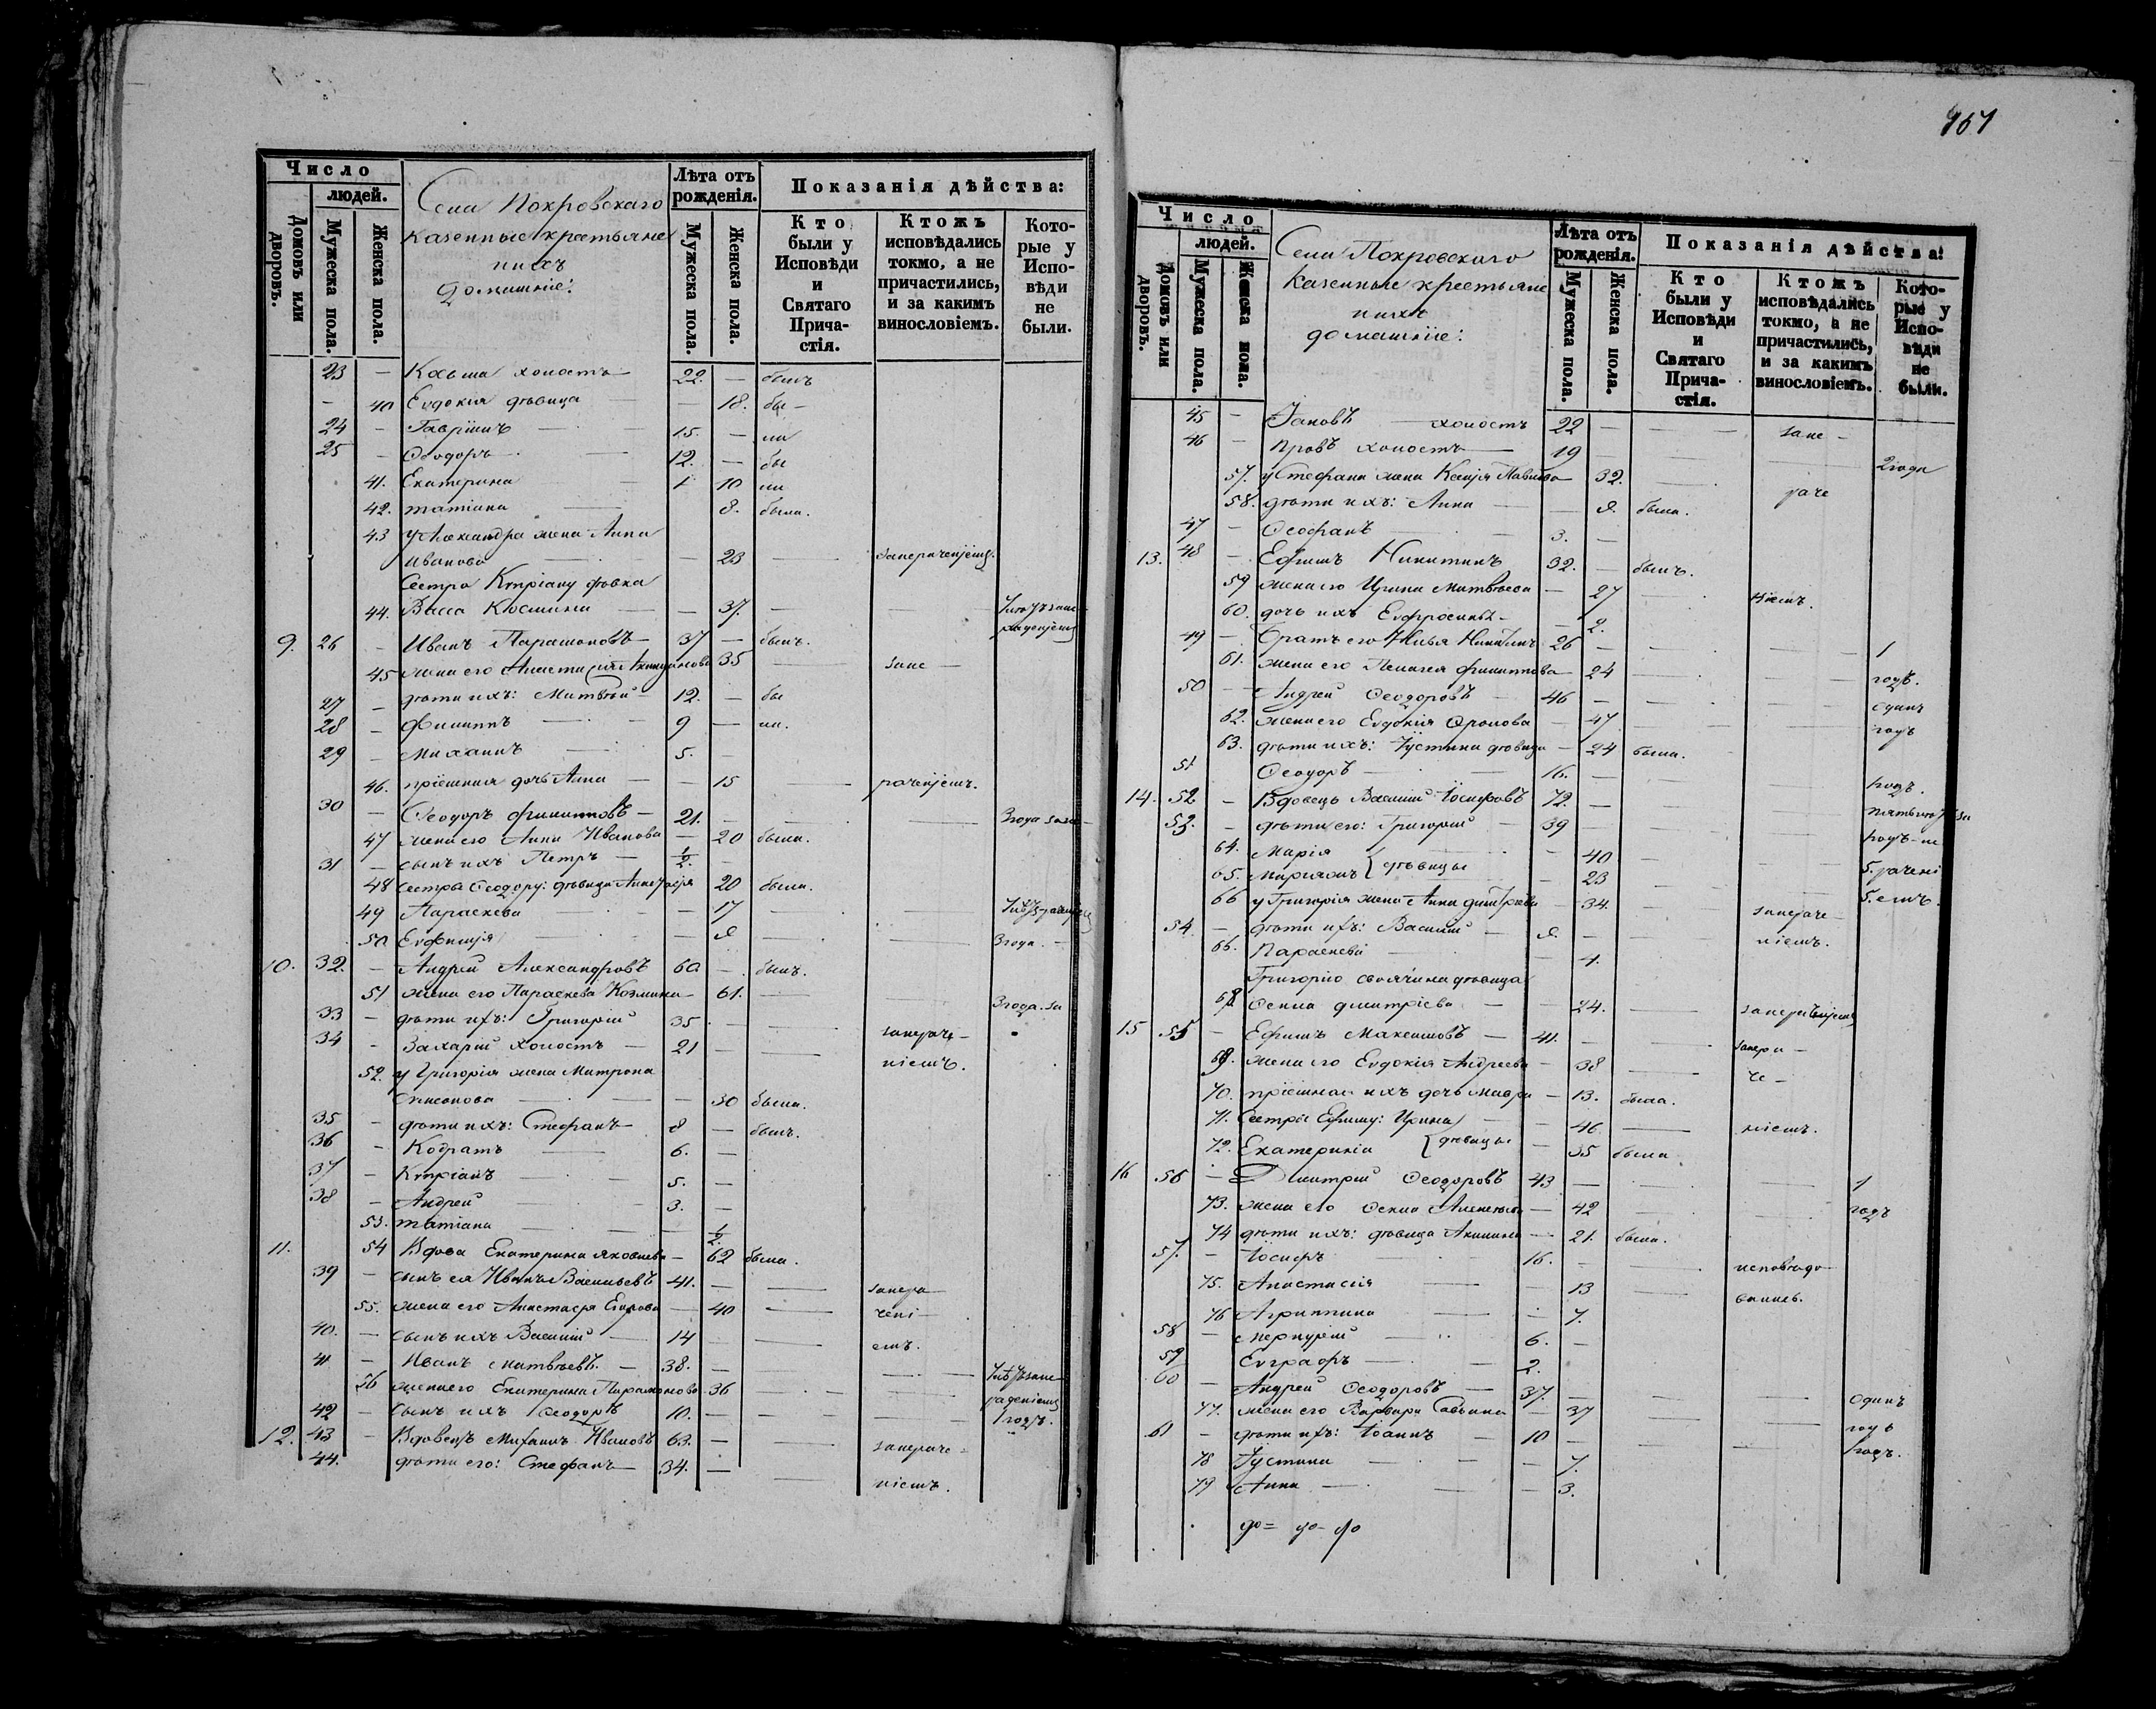 Число
людей.
Домовъ или дворовъ.
Мужеска пола.
Женска пола.
Села Покровскаго
казенные крестьяне
ихъ
домашніе:
Лѣта отъ рожденія.
Мужеска пола.
Женска пола.
Показанія дѣйства:
Кто были у Исповѣди и Святаго Причастія.
Ктожъ исповѣдались токмо, а не причастились, и за какимъ винословіемъ.
Которые у Исповѣди не были.
23 — Козьма холостъ — 22. — былъ
— 40 Евдокия дѣвица — 18. бы —
24 — Гаврiилъ — 15. — ли
25 — Ѳеодоръ — 12. — бы
41. Екатерина 10 ли
42. татiана 8. была.
43 у Александра жена Анна
Иванова — 23 — занераченіемъ.
Сестра Кипріану дѣвка
44. Васса Космина — — 37. —
9. 26 — Иванъ Парамоновъ — 37 — былъ.
45 жена его Анастасія 35 — зане —
27 — дѣти ихъ: Матвѣй — 12. — бы
28 — Филиппъ — 9 — ли.
29 — Михаилъ 5. —
46. пріемная дочь Анна — — 15 — раченіемъ.
30 — Ѳеодоръ Филипповъ — 21. — 3 года
47 жена его Анна Иванова — 20 была.
31 — сынъ ихъ Петръ — 1/2. —
48 сестры Ѳеодору: дѣвица Анастасія 20 была.
49 Параскева — — 17 —
50 Евфимія — — 9 — 3 года. —
10. 32. — Андрей Александровъ 60 — былъ.
51 жена его Параскева Козмина — 61. — 3 года. за
33 — дѣти ихъ: Григорій 35. — занераче —
34 — Захарій холостъ — 21 — ніемъ.
52. у Григорія жена Матрона
Симеонова — — 30 была.
35 — дѣти ихъ: Стефанъ — 8 — былъ.
36 — Кодратъ — 6. —
37 — Кипріанъ — 5. —
38 — Андрей — 3. —
53. татiана — 1/2.
11. 54 Вдова Екатерина Яковлева — 62 была.
39 — сынъ ея Иванъ Васильевъ 41. — занера
55. жена его Анастасія Егорова — 40 — чені —
40. — сынъ ихъ Василій — 14 — емъ.
41 — Иванъ Матвѣевъ. — 38. —
56 жена его Екатерина Парамонова 36
42 — сынъ ихъ Ѳеодоръ 10. — 1 годъ.
12. 43 — Вдовецъ Михаилъ Ивановъ 63. — занераче =
44. дѣти его: Стефанъ — 34. — ніемъ.
Число
людей.
Домовъ или дворовъ.
Мужеска пола.
Женска пола.
Села Покровскаго
казенные крестьяне
ихъ
домашніе:
Лѣта отъ рожденія.
Мужеска пола.
Женска пола.
Показанія дѣйства:
Кто были у Исповѣди и Святаго Причастія.
Ктожъ исповѣдались токмо, а не причастились, и за какимъ винословіемъ.
Которые у Исповѣди не были.
45 — Іаковъ — холостъ 22 — зане —
46 — Провъ холостъ — 19 — 2 года
57. у Стефана жена Ксенія 32. — раче
58. дѣти ихъ: Анна — — 9. была.
47 — Ѳеофанъ 3. —
13. 48 — Ефимъ Никитинъ 32. — былъ.
59 жена его Ирина Матвѣева — 27 — ніемъ.
60. дочь ихъ Евфросинья — — 2.
49 — братъ его Илья Никитинъ 26 — 1
61. жена его Пелагея Филиппова — 24 — годъ.
50 — Андрей Ѳеодоровъ — 46 — одинъ
62. жена его Евдокія Фролова — 47 — годъ
63. дѣти ихъ: Іустина дѣвица — 24 была.
51 Ѳеодоръ — 16. — годъ.
14. 52 — Вдовецъ Василій Іосифовъ 72. —
53. — дѣти его: Григорій — 39 — годъ - не
64. Марія — 40 — 5. рачені
65. Маріамъ } дѣвицы — 23 — 5. емъ.
66 у Григорія жена Анна Димитріева — 34. — занераче —
54 — дѣти ихъ: Василій — 9. — ніемъ.
66. Параскева — 4.
Григорію своячина дѣвица
68. Ѳекла Дмитріева — — 24. —
15 55 — Ефимъ Максимовъ — 41. — занера —
69. жена его Евдокія Андреева — 38 — че —
70. пріемная ихъ дочь Мавра — 13. была.
71. Сестры Ефиму: Ирина — 46 — ніемъ.
72. Екатерина } дѣвицы — 35 была
16 56 — Дмитрій Ѳеодоровъ 43 — 1
73. жена его Ѳекла Алексѣева — 42 — годъ
74 дѣти ихъ: дѣвица Акилина — 21. была.
57. — Іосифъ — 16. — исповѣдо
75. Анастасія — 13 вались.
76 Агриппина — 7.
58 — Меркурій — 6. —
59 Евграфъ — 2.
60 — Андрей Ѳеодоровъ — 37. — одинъ
77. жена его Варвара Савѣина — 37 — годъ
61 — дѣти ихъ: Іоаннъ — 10 — годъ.
78 Іустина — 7.
79 Анна — 3.